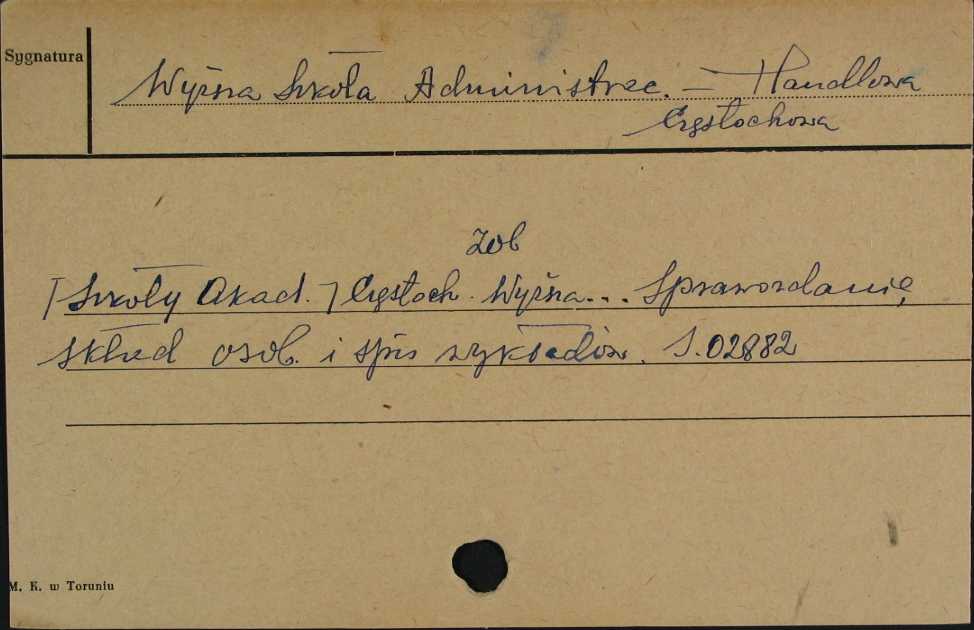 Sygnatura
Wyższa Szkoła Administrac. – Handlowa
Częstochowa
zob
[Szkoły Akad.] Częstoch. Wyższa... Sprawozdanie,
skład osob. i spis wykładów. S.02882
M. K. w Toruniu